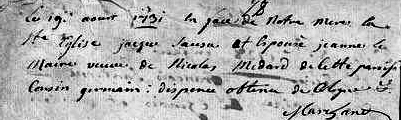 Le 19e aoust 1731 En face de Notre Mere la
Ste Eglise jacque a Epousé jeanne le
Maire veuve de Nicolas Medard de cette paroisse
Cousin germain: dispence obtenue de